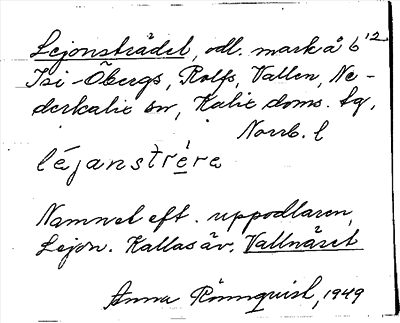 Lejonsträdet, odl. mark å 6¹²
Isi-Öbergs, Rolfs, Vallen, Ne-
derkalix sn, Kalix doms. tg,
Norrb. l
léjanstrère
Namnet eft. uppodlaren,
Lejon. Kallas äv. Vallnäset
Anna Rönnquist, 1949